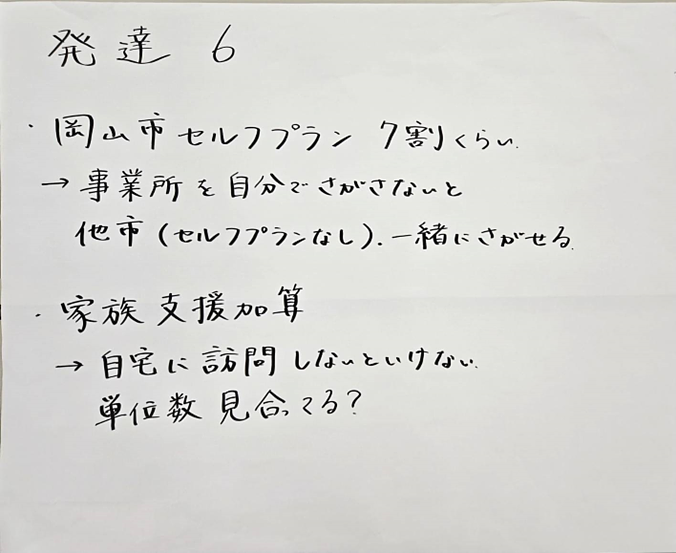 発達 6
・岡山市 セルフプラン 7割くらい.
→ 事業所を自分でさがさないと
他市(セルフプランなし). 一緒にさがせる.
・家族支援加算
→ 自宅に訪問しないといけない.
単位数 見合ってる?